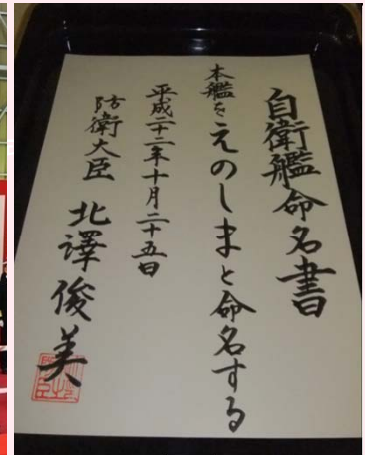 自衛艦命名書
本艦をえのしまと命名する
平成二十二年十月二十五日
防衛大臣 北澤俊美